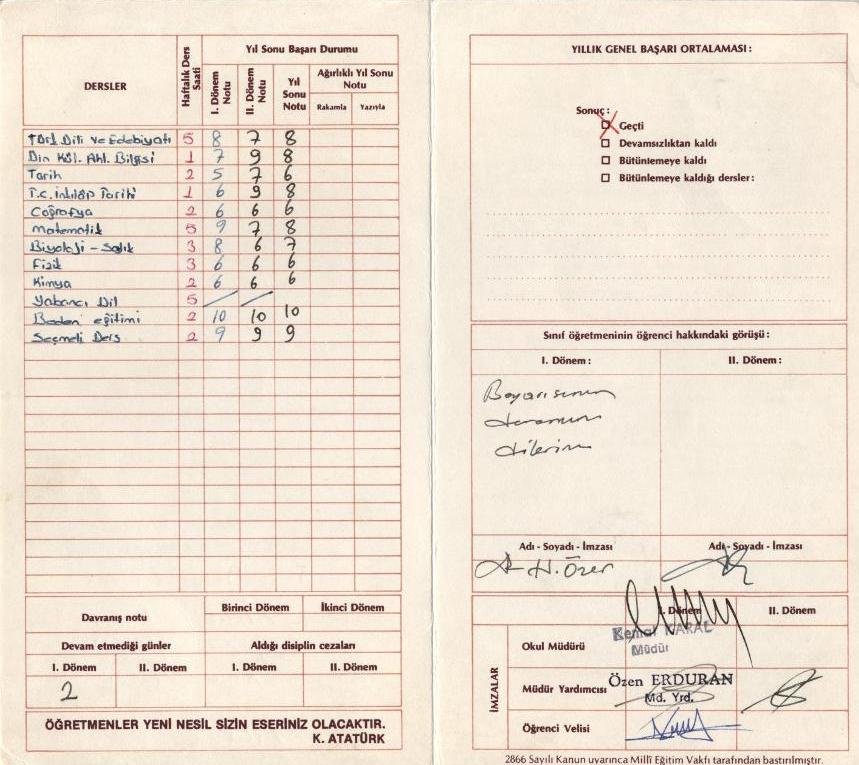 DERSLER
Haftalık Ders Saati
Yıl Sonu Başarı Durumu
I. Dönem Notu
II. Dönem Notu
Yıl Sonu Notu
Ağırlıklı Yıl Sonu Notu
Rakamla Yazıyla
Türk Dili ve Edebiyatı 5 8 7 8
Din Kül. Ahl. Bilgisi 1 7 9 8
Tarih 2 5 7 6
T.C. İnkılâp Tarihi 1 6 9 8
Coğrafya 2 6 6 6
Matematik 5 9 7 8
Biyoloji - Sağlık 3 8 6 7
Fizik 3 6 6 6
Kimya 2 6 6 6
Yabancı Dil 5 / /
Beden eğitimi 2 10 10 10
Seçmeli Ders 2 9 9 9
Davranış notu
Birinci Dönem İkinci Dönem
Devam etmediği günler Aldığı disiplin cezaları
I. Dönem II. Dönem I. Dönem II. Dönem
2
ÖĞRETMENLER YENİ NESİL SİZİN ESERİNİZ OLACAKTIR.
K. ATATÜRK
YILLIK GENEL BAŞARI ORTALAMASI :
Sonuç :
Geçti
Devamsızlıktan kaldı
Bütünlemeye kaldı
Bütünlemeye kaldığı dersler :
Sınıf öğretmeninin öğrenci hakkındaki görüşü :
I. Dönem : II. Dönem :
Başarısının
devamını
dilerim
Adı - Soyadı - İmzası Adı - Soyadı - İmzası
H. Özer
İMZALAR
I. Dönem II. Dönem
Okul Müdürü
Kemal KARAL
Müdür
Müdür Yardımcısı
Özen ERDURAN
Md. Yrd.
Öğrenci Velisi
2866 Sayılı Kanun uyarınca Millî Eğitim Vakfı tarafından bastırılmıştır.